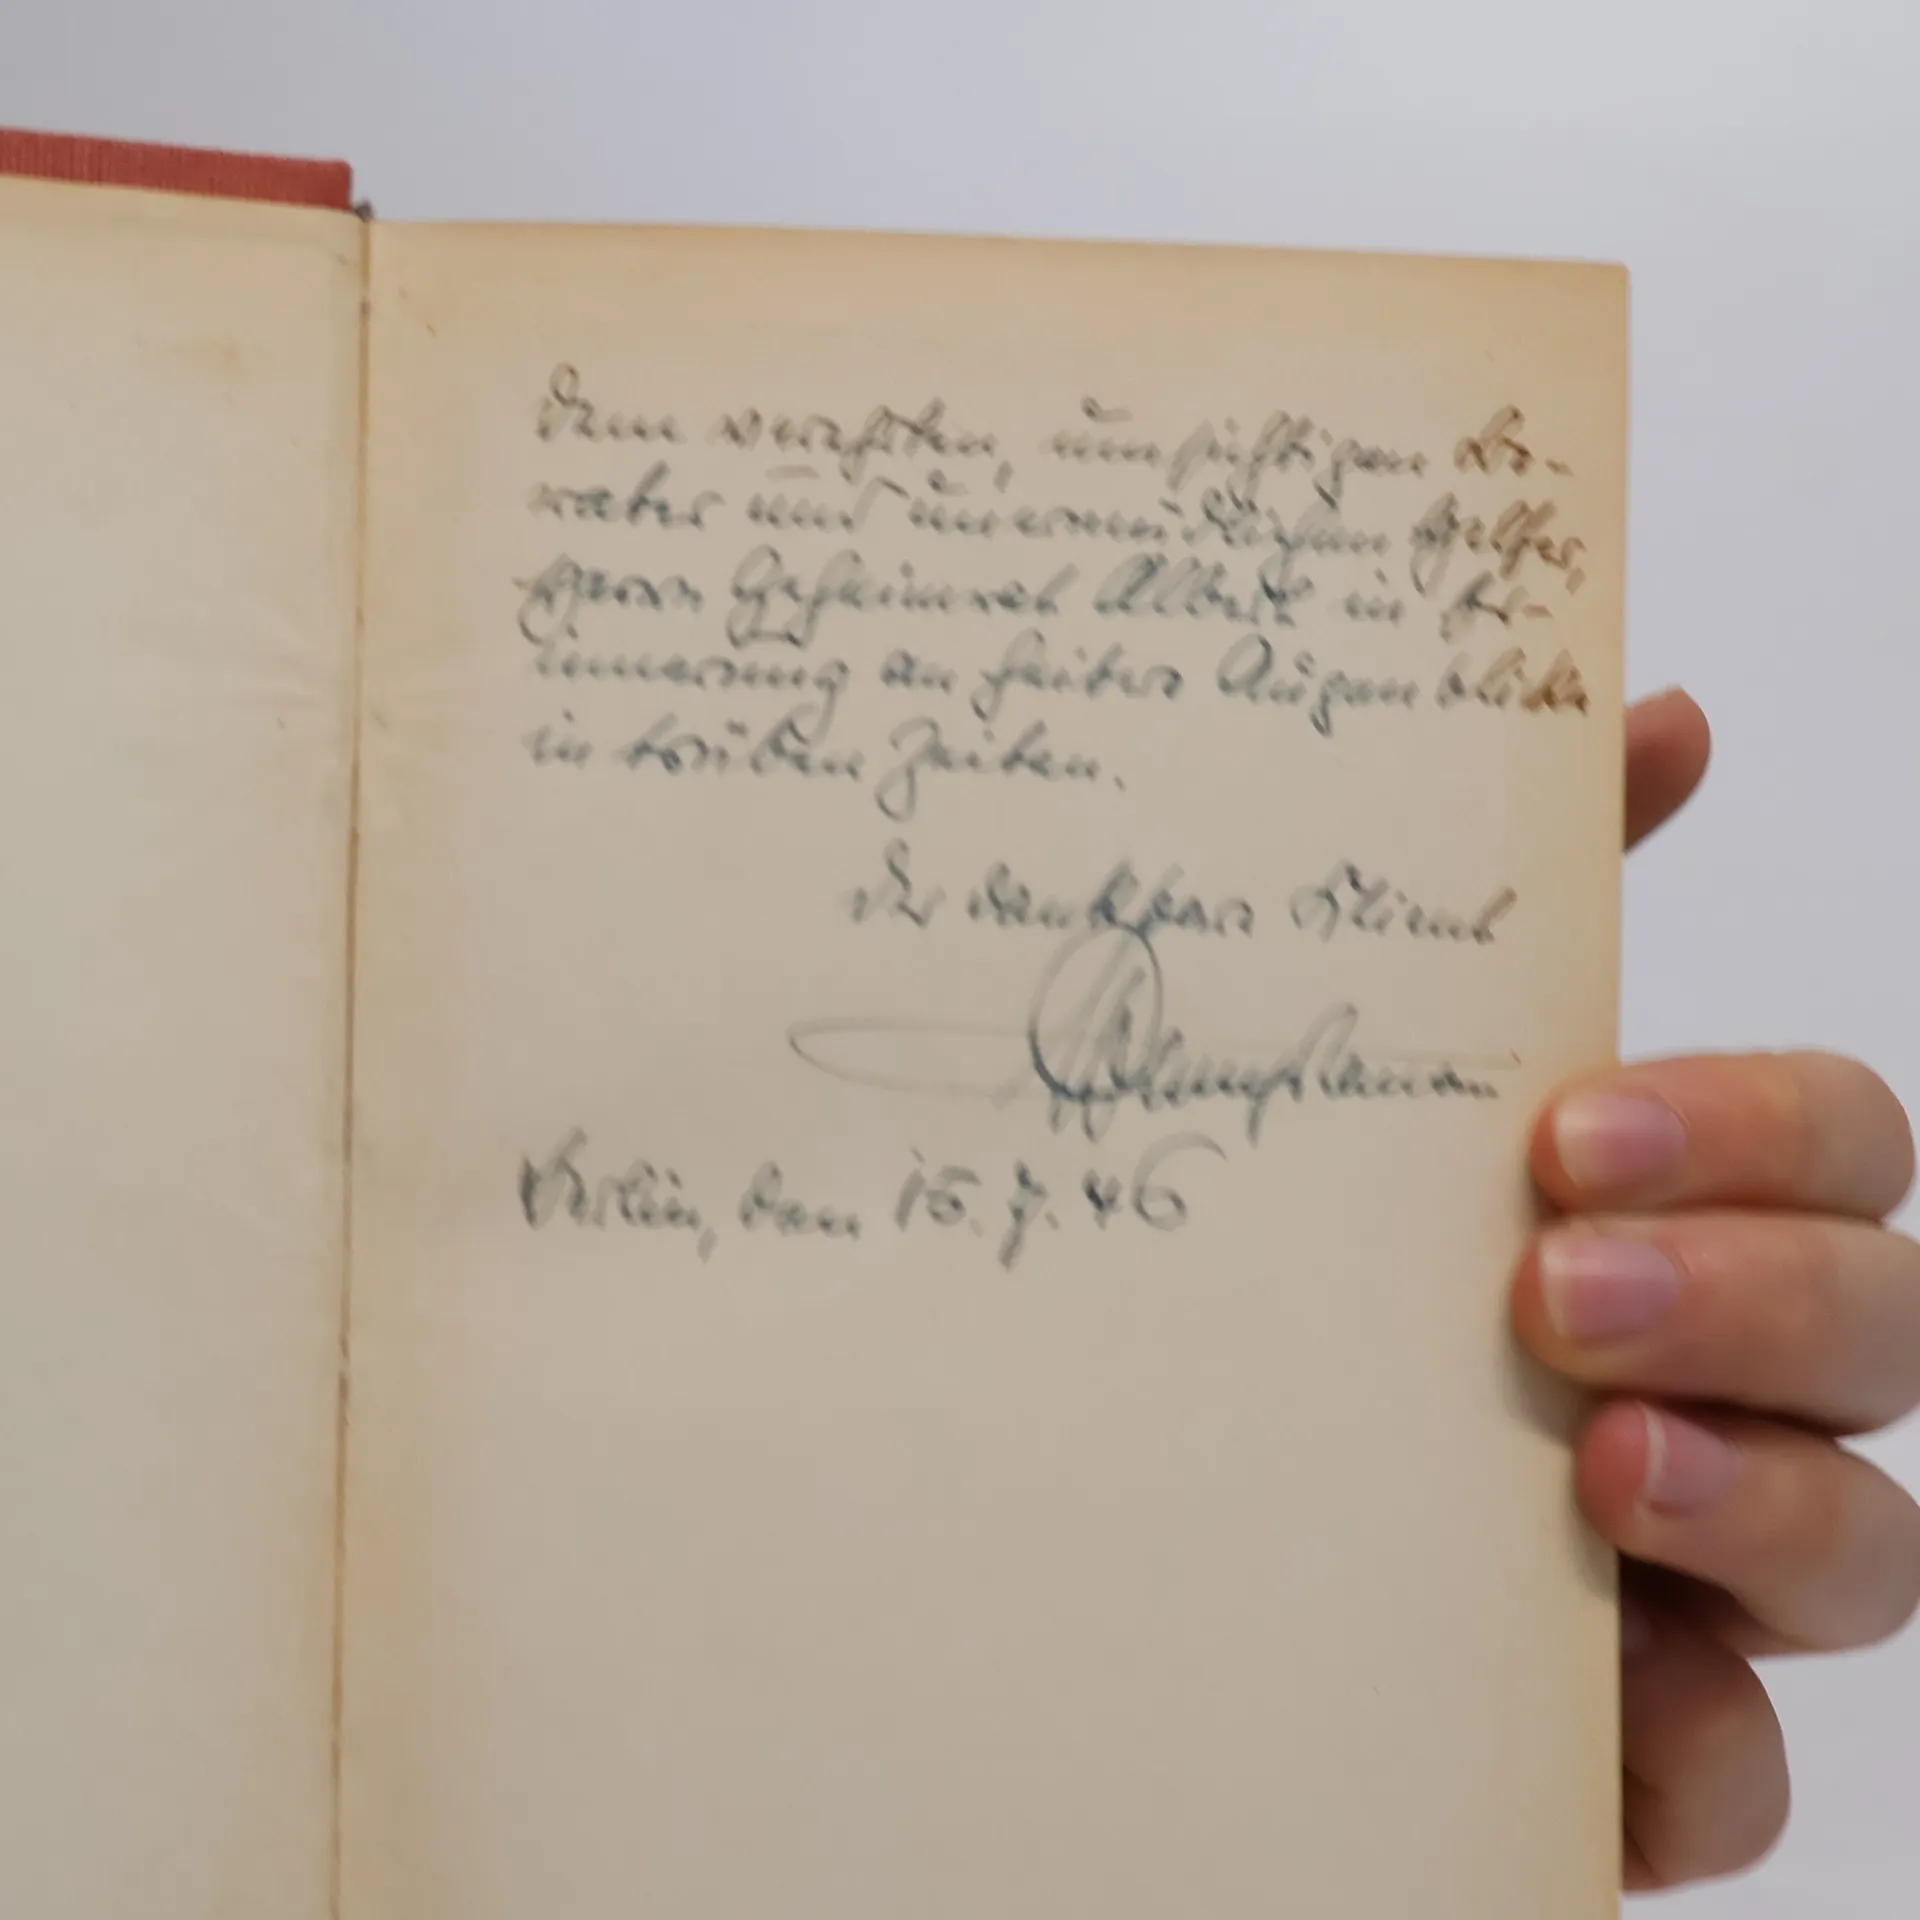 Dem verehrten, umsichtigen Be-
rater und unermüdlichen Helfer,
Herrn Geheimrat Albert in Er-
innerung an heitere Augenblicke
in trüben Zeiten.
Der dankbare Klient
Berlin, den 15. 7. 46